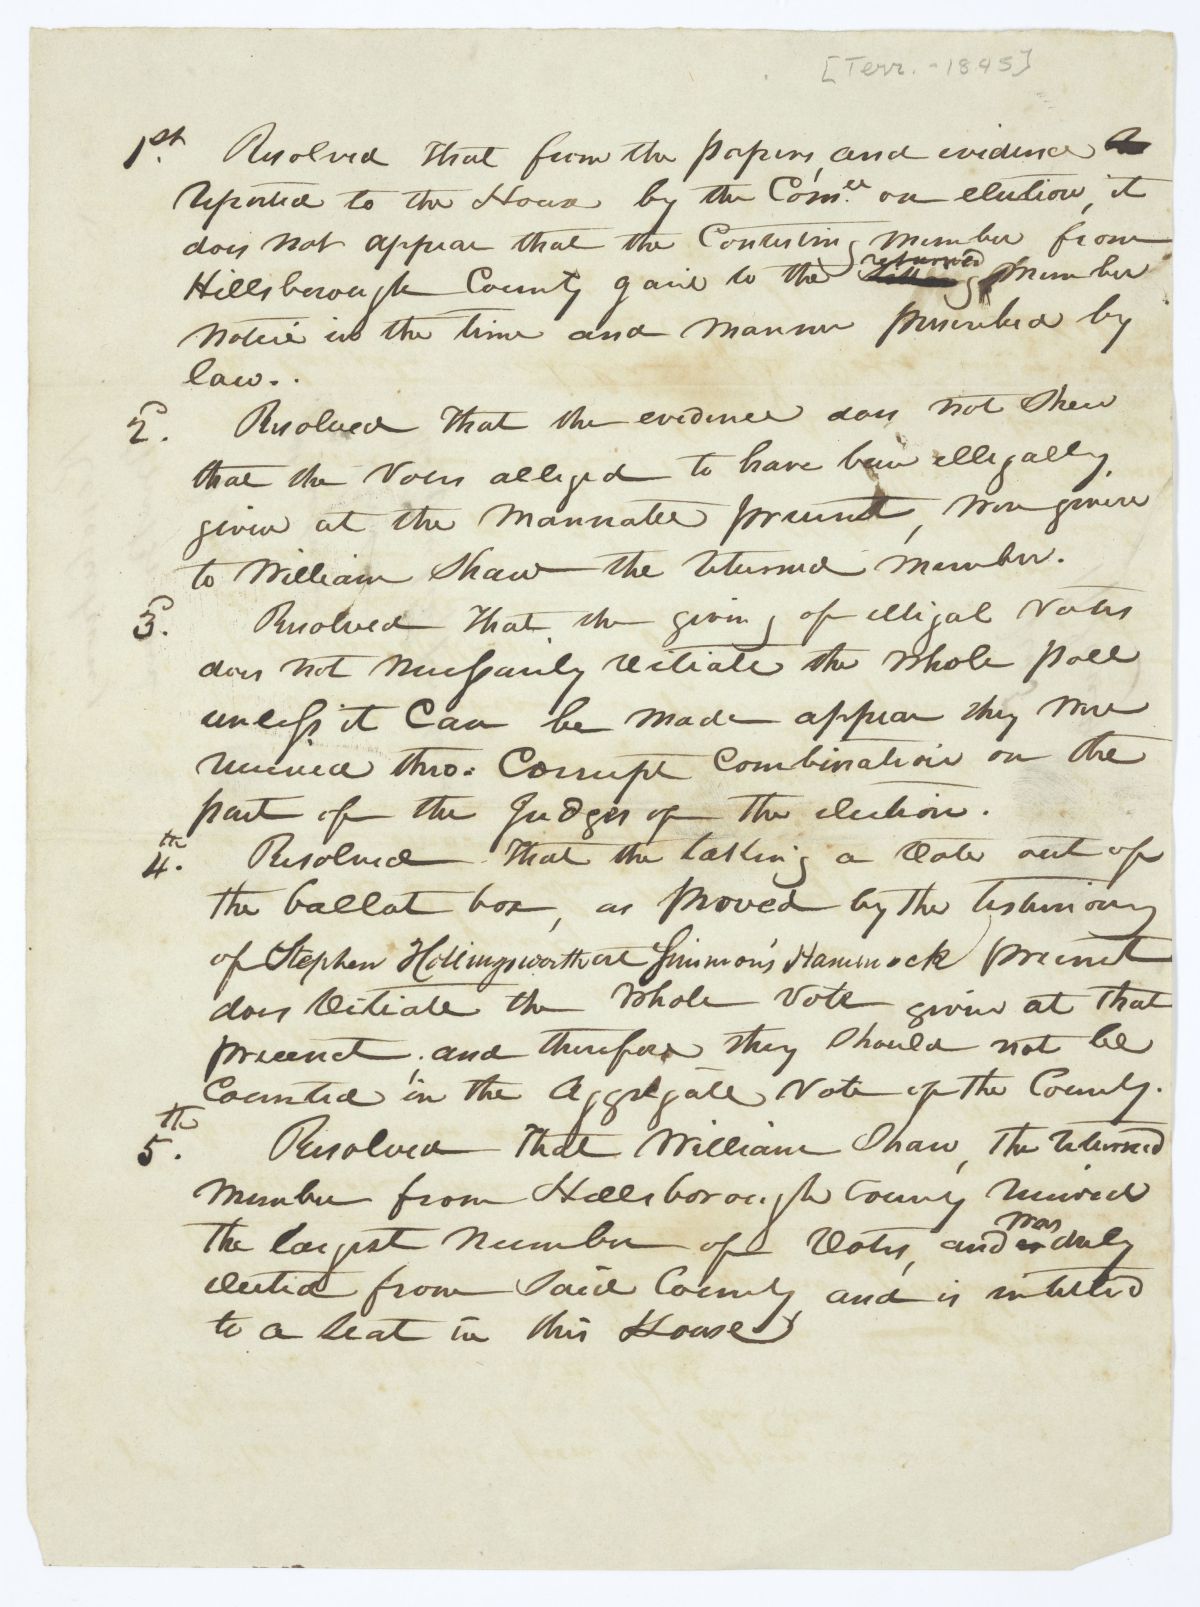 [Terr. - 1845]
1st. Resolved that from the papers, and evidence
reported to the House by the Comee. on election, it
does not appear that the Contesting member from
Hillsborough County gave to the returned member
notice in the time and manner prescribed by
law..
2d. Resolved that the evidence does not shew
that the Votes alleged to have been illegally
given at the Mannatee precinct, were given
to William Shaw the returned member.
3d. Resolved that the giving of illigal Votes
does not necessarily vitiate the whole poll
unless it Can be made appear they were
received thro: Corrupt Combination on the
part of the Judges of the election.
4th. Resolved that the taking a vote out of
the ballat box, as proved by the testimony
of Stephen Hollingsworth at Simmons Hammock precinct
does vitiate the whole Vote given at that
precinct, and therefore they should not be
Counted in the Aggregate Vote of the County.
5th. Resolved that William Shaw, the returned
member from Hillsborough County received
the largest number of votes, and was duly
elected from said County and is intitled
to a seat in this House